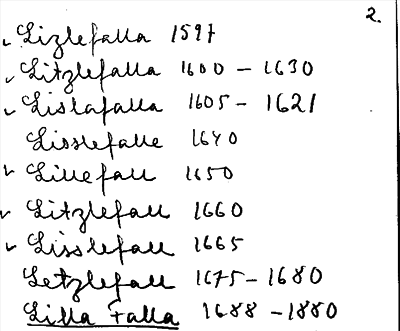 2.
✓ Lizlefalla 1597
✓ Litzlefalla 1600 – 1630
✓ Lislafalla 1605 – 1621
Lisslefalle 1640
✓ Lillefall 1650
✓ Litzlefall 1660
✓ Lisslefall 1665
Letzlefall 1675 – 1680
Lilla Falla 1688 – 1880